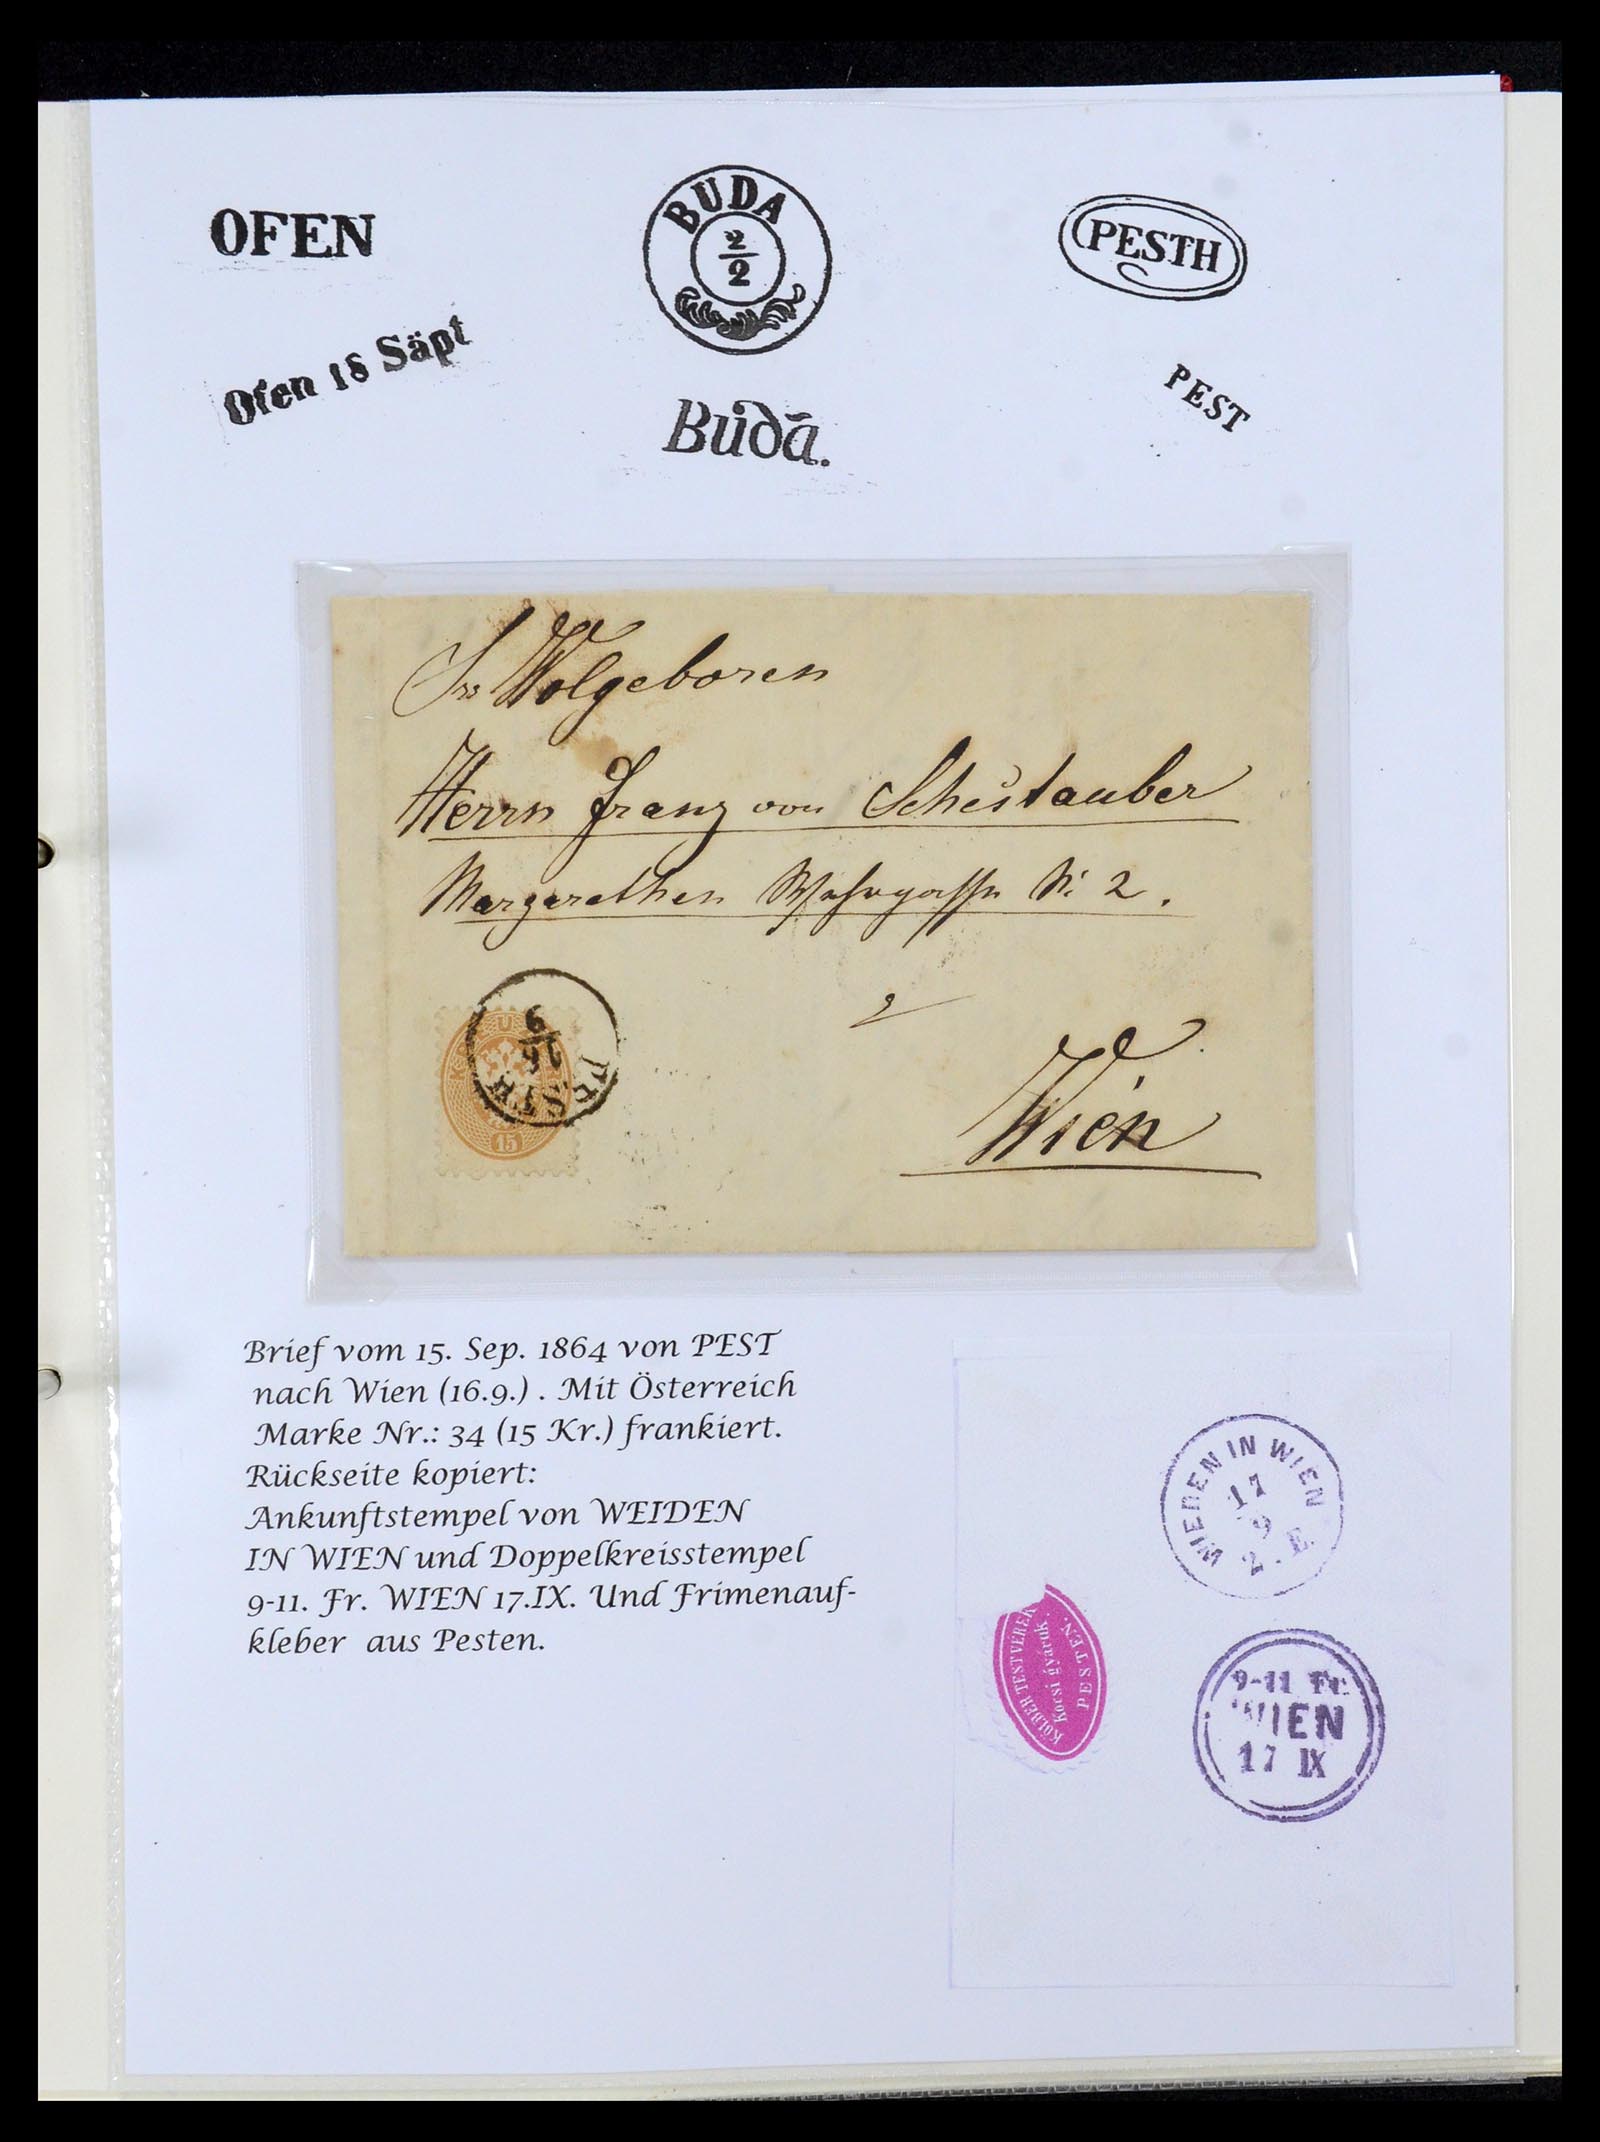 OFEN
BUDA
2/2
PESTH
Ofen 18 Säpt
PEST
Budā.
Wolgeboren
Herrn Franz von Schestauber
Margarethen No 2.
Wien
PESTH
16/9
15
Brief vom 15. Sep. 1864 von PEST
nach Wien (16.9.) . Mit Österreich
Marke Nr.: 34 (15 Kr.) frankiert.
Rückseite kopiert:
Ankunftstempel von WEIDEN
IN WIEN und Doppelkreisstempel
9-11. Fr. WIEN 17.IX. Und Frimenauf-
kleber aus Pesten.
WIEDEN IN WIEN
17
9
2. E.
KÖLBER TESTVÉREK
Kocsi gyárnok.
PESTEN.
9-11 Fr.
WIEN
17 IX